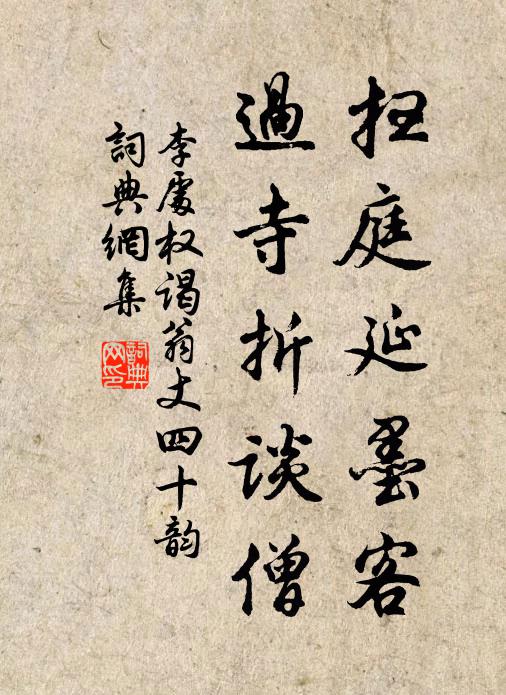 扫庭延墨客
過寺折談僧
李處权谒翁丈四十韵
詞典網集
詞典
网印